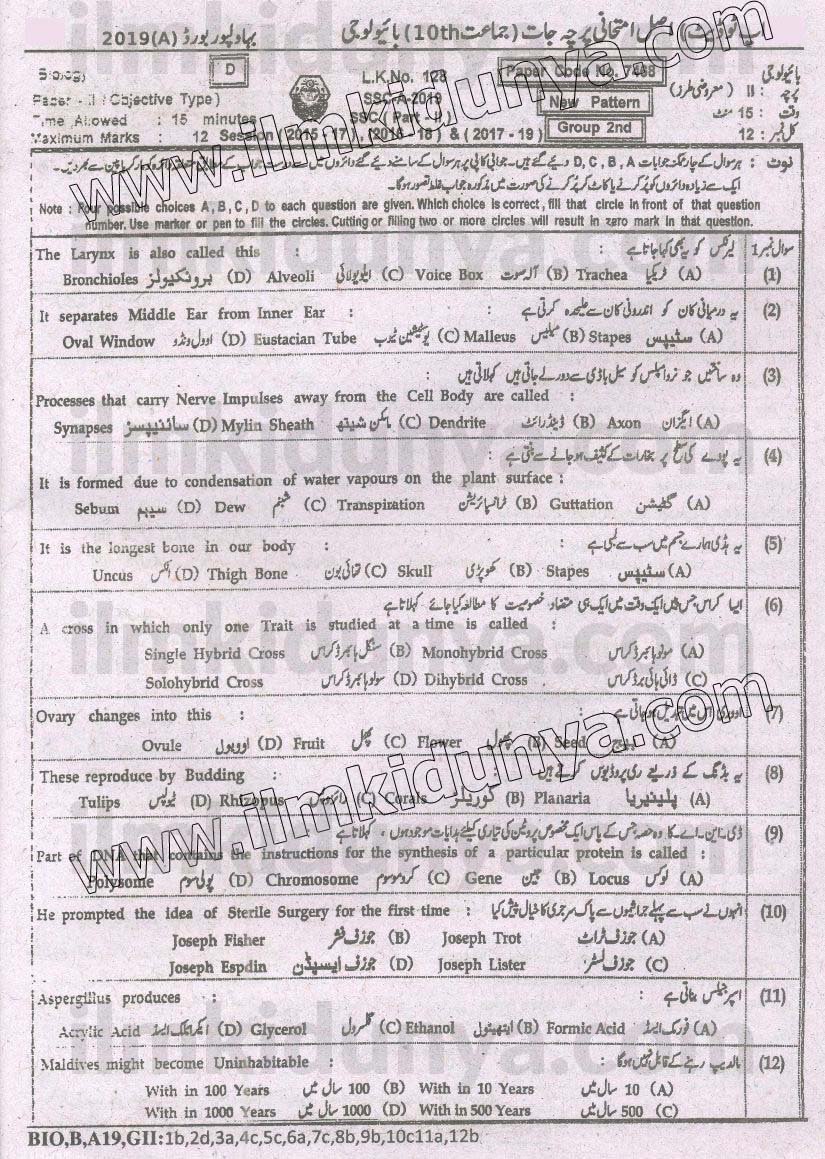 اپ ٹو ڈیٹ اصل امتحانی پرچہ جات (جماعت 10th) بائیولوجی بہاولپور بورڈ (A)2019
Biology D L.K.No. 123 Paper Code No. 7468 بائیولوجی
Paper - II (Objective Type) SSC-A-2019 New Pattern پرچہ : II (معروضی طرز)
Time Allowed : 15 minutes SSC (Part - II) Group 2nd وقت : 15 منٹ
Maximum Marks : 12 Session (2015 - 17), (2016 - 18) & (2017 - 19) کل نمبر : 12
نوٹ : ہر سوال کے چار ممکنہ جوابات D, C, B, A دیے گئے ہیں۔ جوابی کاپی پر ہر سوال کے سامنے دیے گئے دائروں میں سے درست جواب کے مطابق متعلقہ دائرہ کو مارکر یا پین سے بھر دیں۔
ایک سے زیادہ دائروں کو پُر کرنے یا کاٹ کر پُر کرنے کی صورت میں مذکورہ جواب غلط تصور ہوگا۔
Note : Four possible choices A, B, C, D to each question are given. Which choice is correct, fill that circle in front of that question
number. Use marker or pen to fill the circles. Cutting or filling two or more circles will result in zero mark in that question.
The Larynx is also called this : لیرنکس کو یہ بھی کہا جاتا ہے سوال نمبر 1
Bronchioles برونکیولز (D) Alveoli ایلویولائی (C) Voice Box آلہ صوت (B) Trachea ٹریکیا (A) (1)
It separates Middle Ear from Inner Ear : یہ درمیانی کان کو اندرونی کان سے علیحدہ کرتی ہے (2)
Oval Window اوول ونڈو (D) Eustacian Tube یوسٹیشین ٹیوب (C) Malleus میلیس (B) Stapes سٹیپس (A)
وہ ساختیں جو نرو امپلس کو سیل باڈی سے دور لے جاتی ہیں کہلاتی ہیں (3)
Processes that carry Nerve Impulses away from the Cell Body are called :
Synapses سائنیپسز (D) Mylin Sheath مائلن شیتھ (C) Dendrite ڈینڈرائٹ (B) Axon ایگزان (A)
یہ پودے کی سطح پر بخارات کے کثیف ہو جانے سے بنتی ہے : (4)
It is formed due to condensation of water vapours on the plant surface :
Sebum سیبم (D) Dew شبنم (C) Transpiration ٹرانسپائریشن (B) Guttation گٹیشن (A)
It is the longest bone in our body : یہ ہڈی ہمارے جسم میں سب سے لمبی ہے (5)
Uncus انکس (D) Thigh Bone تھائی بون (C) Skull کھوپڑی (B) Stapes سٹیپس (A)
ایسا کراس جس میں ایک وقت میں ایک ہی متضاد خصوصیت کا مطالعہ کیا جائے کہلاتا ہے (6)
A cross in which only one Trait is studied at a time is called :
Single Hybrid Cross سنگل ہائبرڈ کراس (B) Monohybrid Cross مونو ہائبرڈ کراس (A)
Solohybrid Cross سولو ہائبرڈ کراس (D) Dihybrid Cross ڈائی ہائی برڈ کراس (C)
Ovary changes into this : اووری اس میں تبدیل ہو جاتی ہے (7)
Ovule اوویول (D) Fruit پھل (C) Flower پھول (B) Seed بیج (A)
These reproduce by Budding : یہ بڈنگ کے ذریعے ری پروڈیوس کرتے ہیں (8)
Tulips ٹیولپس (D) Rhizopus رائزوپس (C) Corals کوریلز (B) Planaria پلینیریا (A)
ڈی۔این۔اے۔ کا وہ حصہ جس کے پاس ایک مخصوص پروٹین کی تیاری کیلئے ہدایات موجود ہوں ، کہلاتا ہے (9)
Part of DNA that contains the instructions for the synthesis of a particular protein is called :
Polysome پولی سوم (D) Chromosome کروموسوم (C) Gene جین (B) Locus لوکس (A)
He prompted the idea of Sterile Surgery for the first time : انہوں نے سب سے پہلے جراثیموں سے پاک سرجری کا خیال پیش کیا (10)
Joseph Fisher جوزف فشر (B) Joseph Trot جوزف ٹراٹ (A)
Joseph Espdin جوزف ایسپڈن (D) Joseph Lister جوزف لسٹر (C)
Aspergillus produces : اسپرجیلس بناتی ہے (11)
Acrylic Acid ایکرائلک ایسڈ (D) Glycerol گلسرول (C) Ethanol ایتھینول (B) Formic Acid فورمک ایسڈ (A)
Maldives might become Uninhabitable : مالدیپ رہنے کے قابل نہیں ہوگا (12)
With in 100 Years 100 سال میں (B) With in 10 Years 10 سال میں (A)
With in 1000 Years 1000 سال میں (D) With in 500 Years 500 سال میں (C)
BIO,B,A19,GII:1b,2d,3a,4c,5c,6a,7c,8b,9b,10c11a,12b
www.ilmkidunya.com
www.ilmkidunya.com
ilmkidunya.com